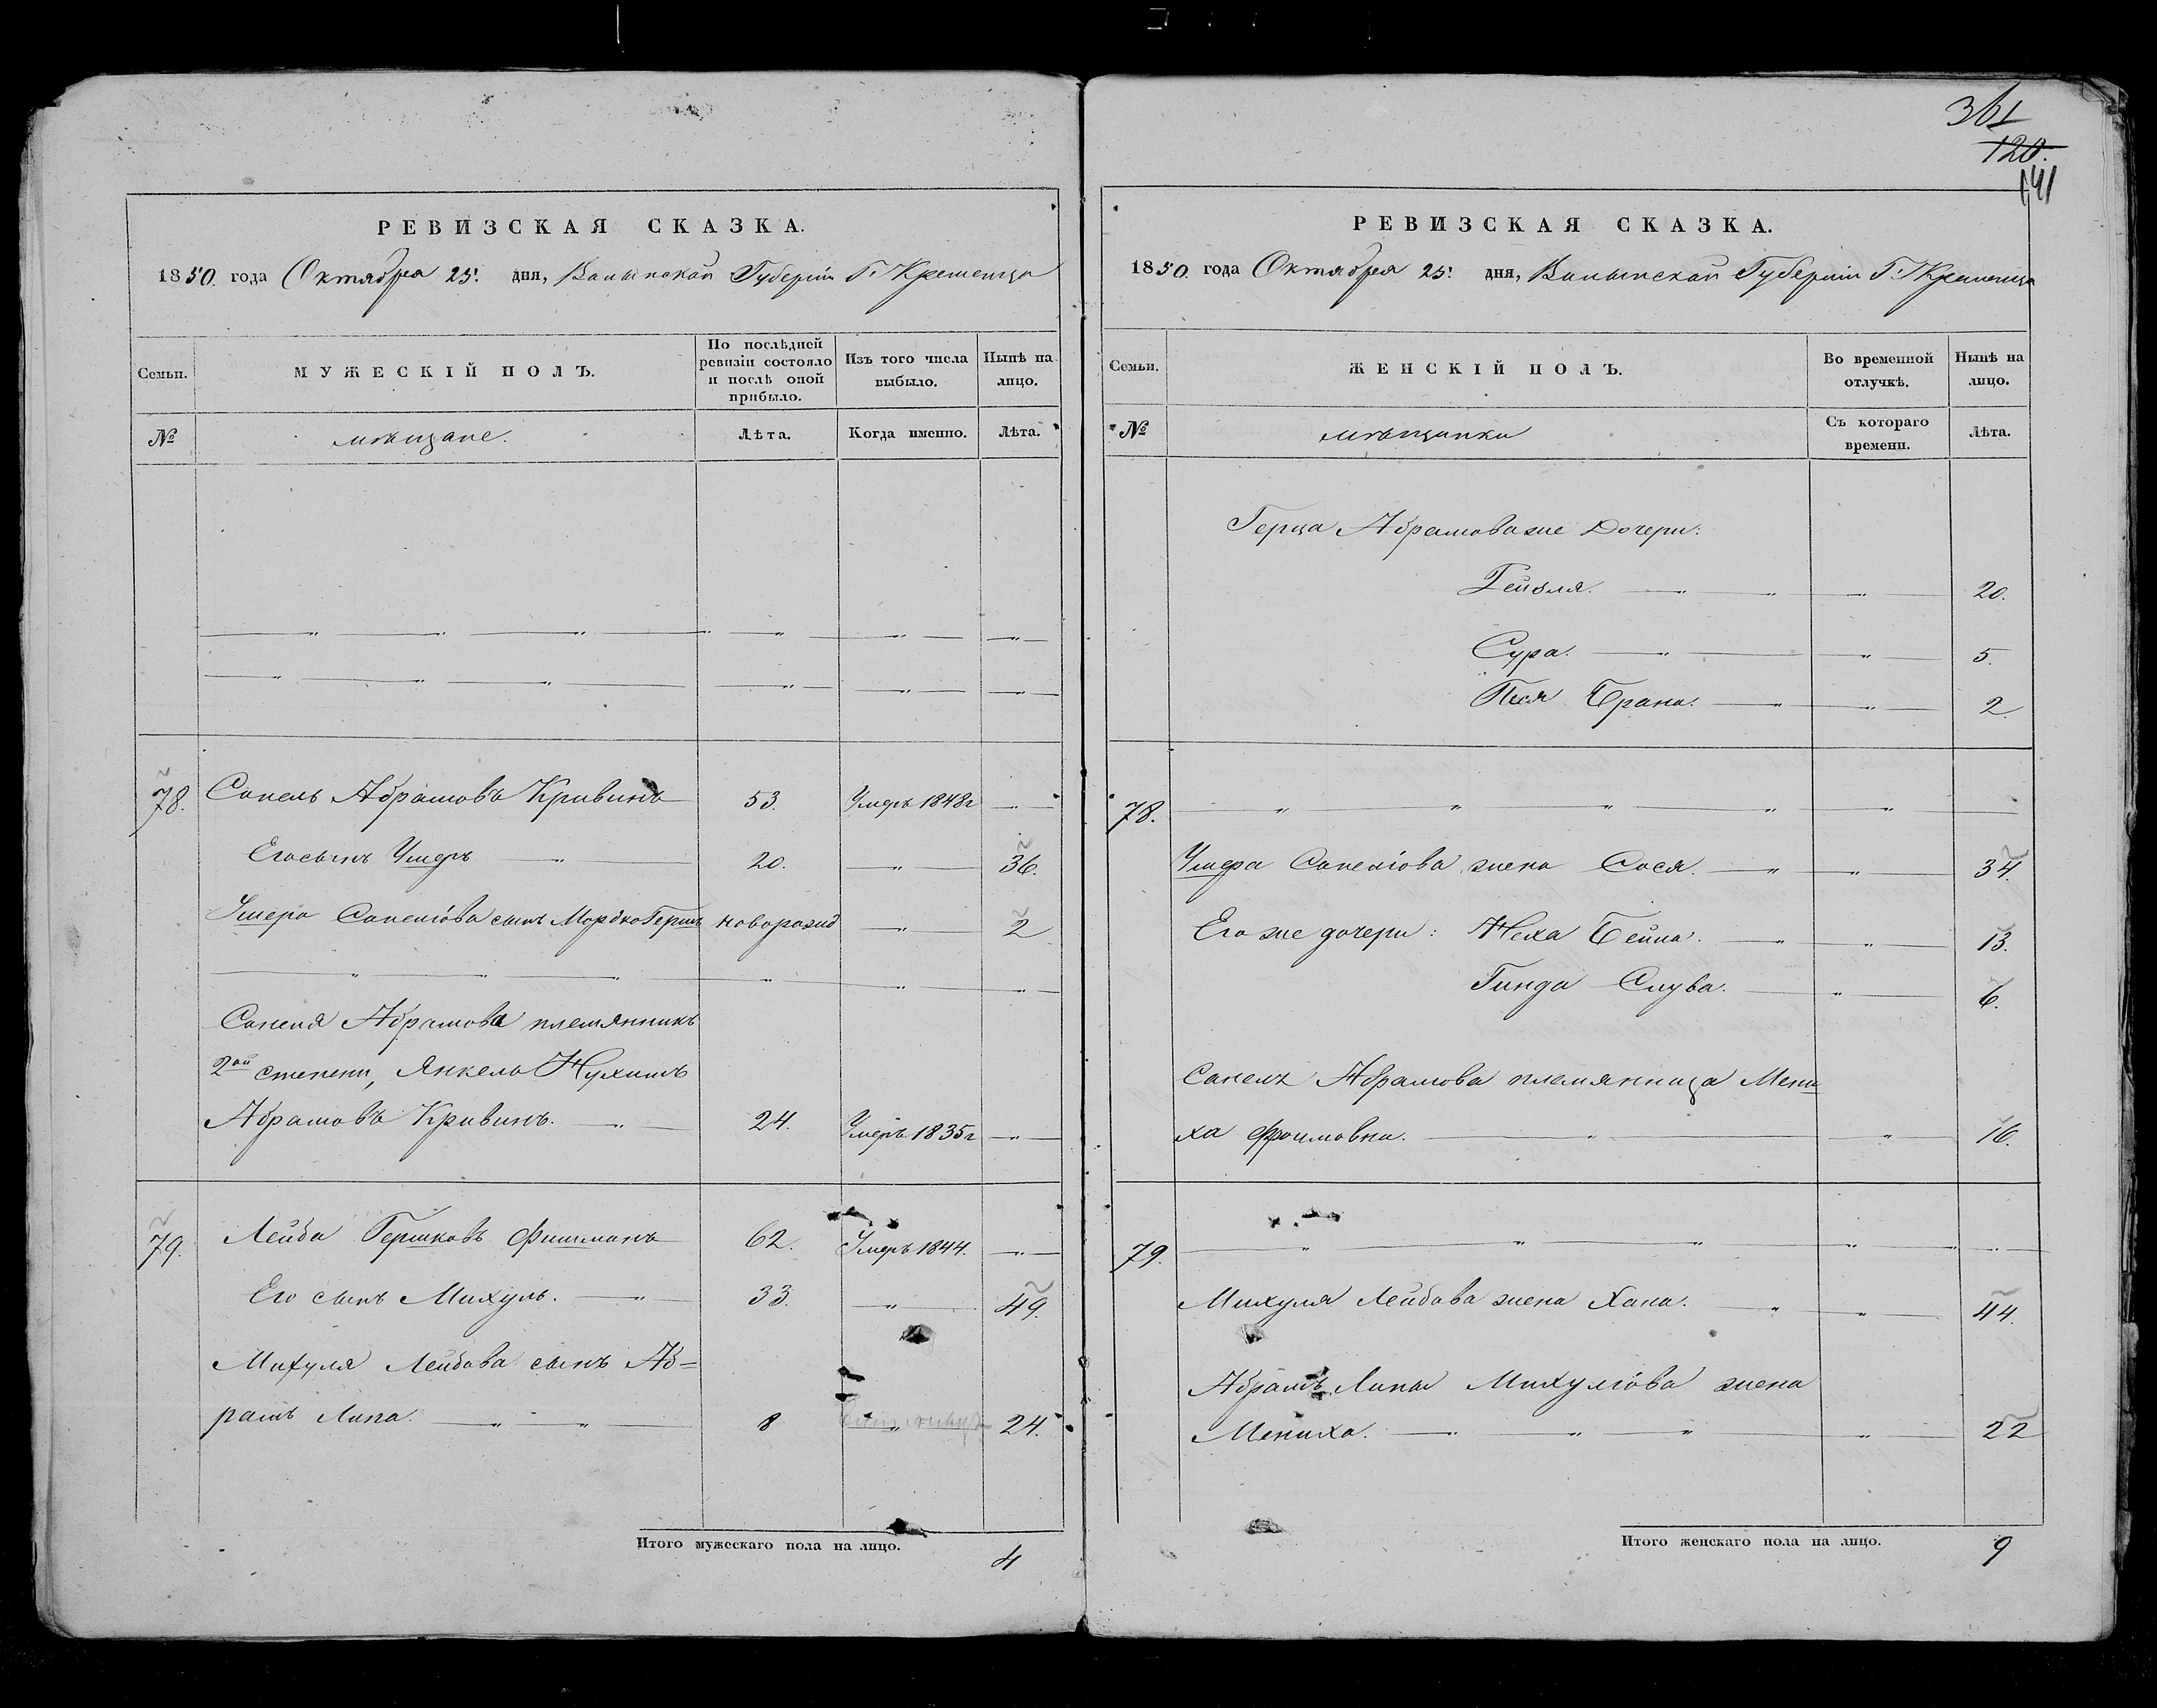 РЕВИЗСКАЯ СКАЗКА.
1850. года Октября 25. дня, Волынской Губернiи Г. Кременца
Семьи.
МУЖЕСКIЙ ПОЛЪ.
По послѣдней ревизiи состояло и послѣ оной прибыло.
Изъ того числа выбыло.
Нынѣ на лицо.
№
мѣщане.
Лѣта.
Когда именно.
Лѣта.
78. Санель Абрамовъ Кривинъ 53. Умеръ 1848г
Его сынъ Ушеръ 20. 36.
Ушера Санелiова сынъ Мордко Гершъ новорожд 2
Санеля Абрамова племянникъ
2ой степени, Янкель Нухимъ
Абрамовъ Кривинъ. 24. Умеръ 1835г
79. Лейба Гершковъ Фишманъ 62. Умеръ 1844.
Его сынъ Михуль. 33. 49.
Михуля Лейбова сынъ Аб=
рамъ Липа. 8 24.
Итого мужескаго пола на лицо. 4
361
120.
141
РЕВИЗСКАЯ СКАЗКА.
1850. года Октября 25. дня, Волынской Губернiи Г. Кременца
Семьи.
ЖЕНСКIЙ ПОЛЪ.
Во временной отлучкѣ.
Нынѣ на лицо.
№
мѣщанки
Съ котораго времени.
Лѣта.
Герца Абрамова же Дочери:
Рейзля. 20.
Сура. 5.
Песя Брана. 2.
78.
Ушера Санелiова жена Сося. 34.
Его же дочери: Неха Бейла. 13.
Гинда Слува. 6.
Санеля Абрамова племянница Мени
ха Фроимовна. 16.
79.
Михуля Лейбова жена Хана. 44.
Абрамъ Липы Михулiова жена
Мениха. 22
Итого женскаго пола на лицо. 9